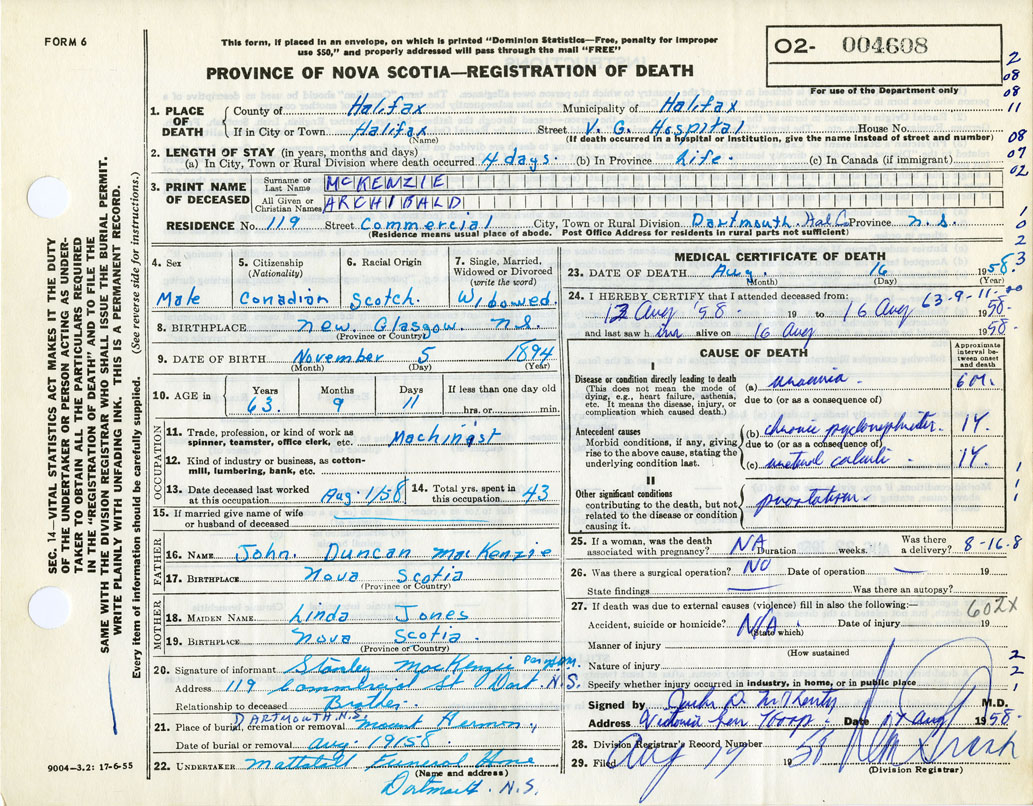 FORM 6
This form, if placed in an envelope, on which is printed "Dominion Statistics—Free, penalty for improper
use $50," and properly addressed will pass through the mail "FREE"
PROVINCE OF NOVA SCOTIA—REGISTRATION OF DEATH
02- 004608
For use of the Department only
2
08
08
11
08
07
02
1. PLACE OF DEATH
County of Halifax Municipality of Halifax
If in City or Town Halifax Street V. G. Hospital House No.
(Name) (If death occurred in a hospital or institution, give the name instead of street and number)
2. LENGTH OF STAY (in years, months and days)
(a) In City, Town or Rural Division where death occurred 4 days. (b) In Province Life. (c) In Canada (if immigrant)
3. PRINT NAME OF DECEASED
Surname or Last Name MCKENZIE
All Given or Christian Names ARCHIBALD
RESIDENCE No. 119 Street Commercial City, Town or Rural Division Dartmouth. Hal. C Province N.S.
(Residence means usual place of abode. Post Office Address for residents in rural parts not sufficient)
1
0
2
3
4. Sex
Male
5. Citizenship
(Nationality)
Canadian
6. Racial Origin
Scotch.
7. Single, Married,
Widowed or Divorced
(write the word)
Widowed.
8. BIRTHPLACE New. Glasgow. N.S.
(Province or Country)
9. DATE OF BIRTH November 5 1894
(Month) (Day) (Year)
10. AGE in
Years Months Days If less than one day old
63. 9 11 hrs. or min.
OCCUPATION
11. Trade, profession, or kind of work as
spinner, teamster, office clerk, etc. Machinist
12. Kind of industry or business, as cotton-
mill, lumbering, bank, etc.
13. Date deceased last worked
at this occupation Aug. 1/58
14. Total yrs. spent in
this occupation 43
15. If married give name of wife
or husband of deceased
FATHER
16. NAME John. Duncan MacKenzie
17. BIRTHPLACE Nova Scotia
(Province or Country)
MOTHER
18. MAIDEN NAME Linda Jones
19. BIRTHPLACE Nova Scotia.
(Province or Country)
20. Signature of informant Stanley MacKenzie
Address 119 Commercial St Dart. N.S.
Relationship to deceased Brother.
DARTMOUTH. N.S.
21. Place of burial, cremation or removal Mount Hermon.
Date of burial or removal Aug. 19/58.
22. UNDERTAKER Mattatall Funeral Home
(Name and address)
Dartmouth. N.S.
9004-3.2: 17-6-55
MEDICAL CERTIFICATE OF DEATH
23. DATE OF DEATH Aug. 16 1958.
(Month) (Day) (Year)
63-9-11-00
24. I HEREBY CERTIFY that I attended deceased from:
Aug '58 19 to 16 Aug 1958
and last saw him alive on 16 Aug 1958
CAUSE OF DEATH
Approximate interval between onset and death
I
Disease or condition directly leading to death
(This does not mean the mode of
dying, e.g., heart failure, asthenia,
etc. It means the disease, injury, or
complication which caused death.)
(a) uraemia. 6 M.
due to (or as a consequence of)
Antecedent causes
Morbid conditions, if any, giving
rise to the above cause, stating the
underlying condition last.
(b) chronic 1Y.
due to (or as a consequence of)
(c) calculi. 1Y.
II
Other significant conditions
contributing to the death, but not
related to the disease or condition
causing it.
prostatism.
25. If a woman, was the death
associated with pregnancy? NA Duration weeks. Was there
a delivery? 8-16.8
26. Was there a surgical operation? NO Date of operation — 19
State findings Was there an autopsy?
27. If death was due to external causes (violence) fill in also the following:—
602X
Accident, suicide or homicide? NA. Date of injury 19
(State which)
Manner of injury
(How sustained
Nature of injury
Specify whether injury occurred in industry, in home, or in public place
2
2
1
Signed by M.D.
Address Victoria Gen Hosp. Date 17 Aug 1958.
28. Division Registrar's Record Number
29. Filed Aug 19 1958
(Division Registrar)
SEC. 14—VITAL STATISTICS ACT MAKES IT THE DUTY
OF THE UNDERTAKER OR PERSON ACTING AS UNDER-
TAKER TO OBTAIN ALL THE PARTICULARS REQUIRED
IN THE "REGISTRATION OF DEATH" AND TO FILE THE
SAME WITH THE DIVISION REGISTRAR WHO SHALL ISSUE THE BURIAL PERMIT.
WRITE PLAINLY WITH UNFADING INK. THIS IS A PERMANENT RECORD.
Every item of information should be carefully supplied. (See reverse side for instructions.)